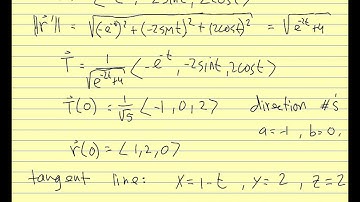 ⟨ , -2sint, 2cost⟩
‖r⃗'‖ = √((-e^-t)² + (-2sint)² + (2cost)²) = √(e^-2t+4)
T⃗ = 1/√(e^-2t+4) ⟨-e^-t, -2sint, 2cost⟩
T⃗(0) = 1/√5 ⟨-1, 0, 2⟩ direction #'s
a=-1, b=0,
r⃗(0) = ⟨1,2,0⟩
tangent line: x=1-t, y=2, z=2